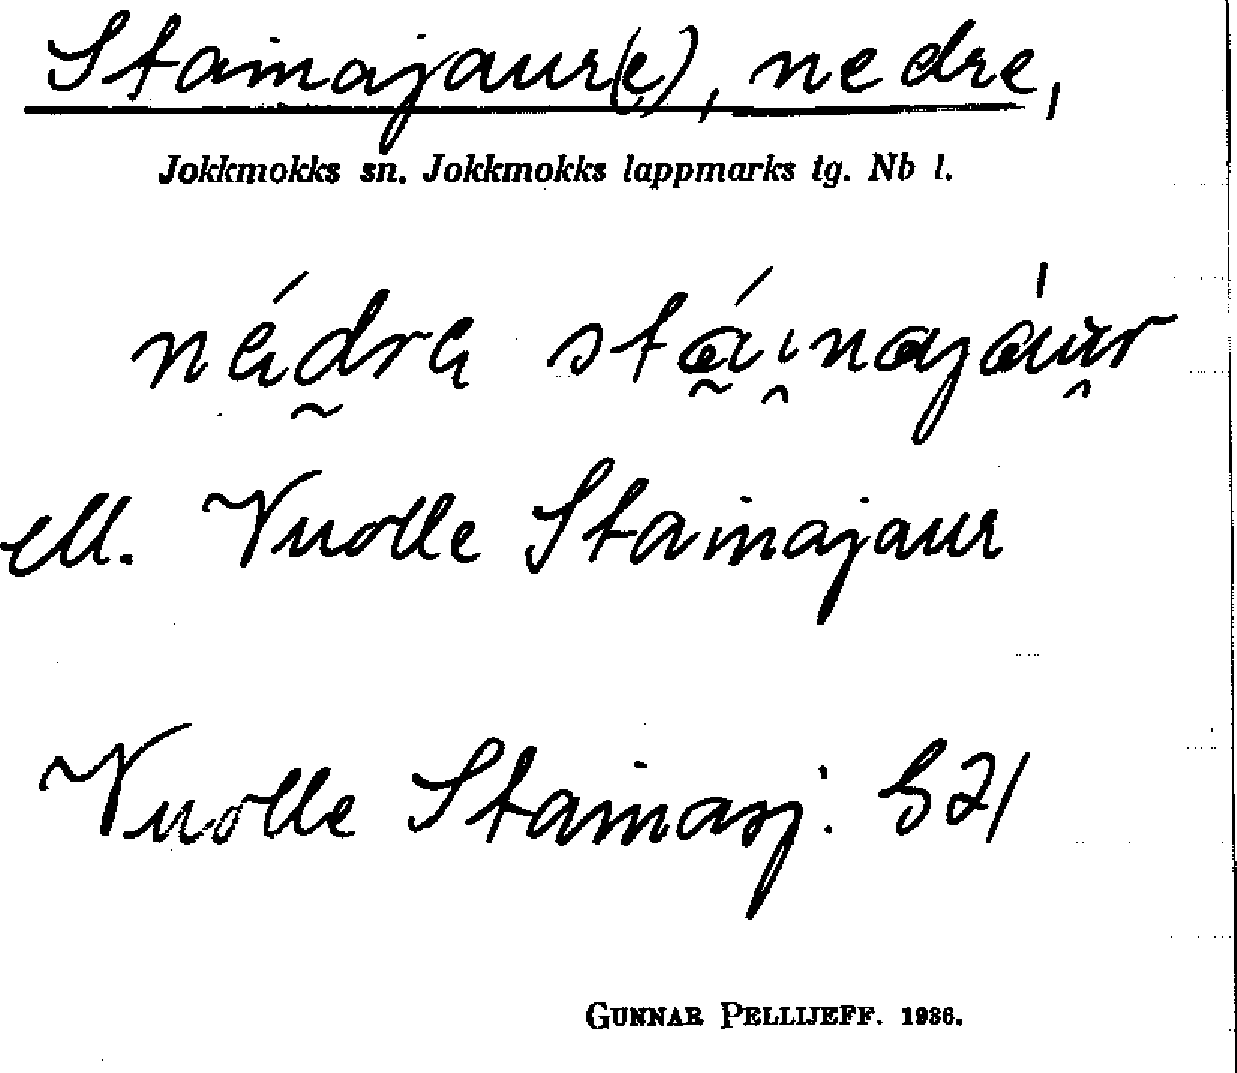 Stainajaur(e), nedre,
Jokkmokks sn. Jokkmokks lappmarks tg. Nb l.
nédra stáinajáur
ell. Vuolle Stainajaur
Vuolle Stainasj. S21
GUNNAR PELLIJEFF. 1936.